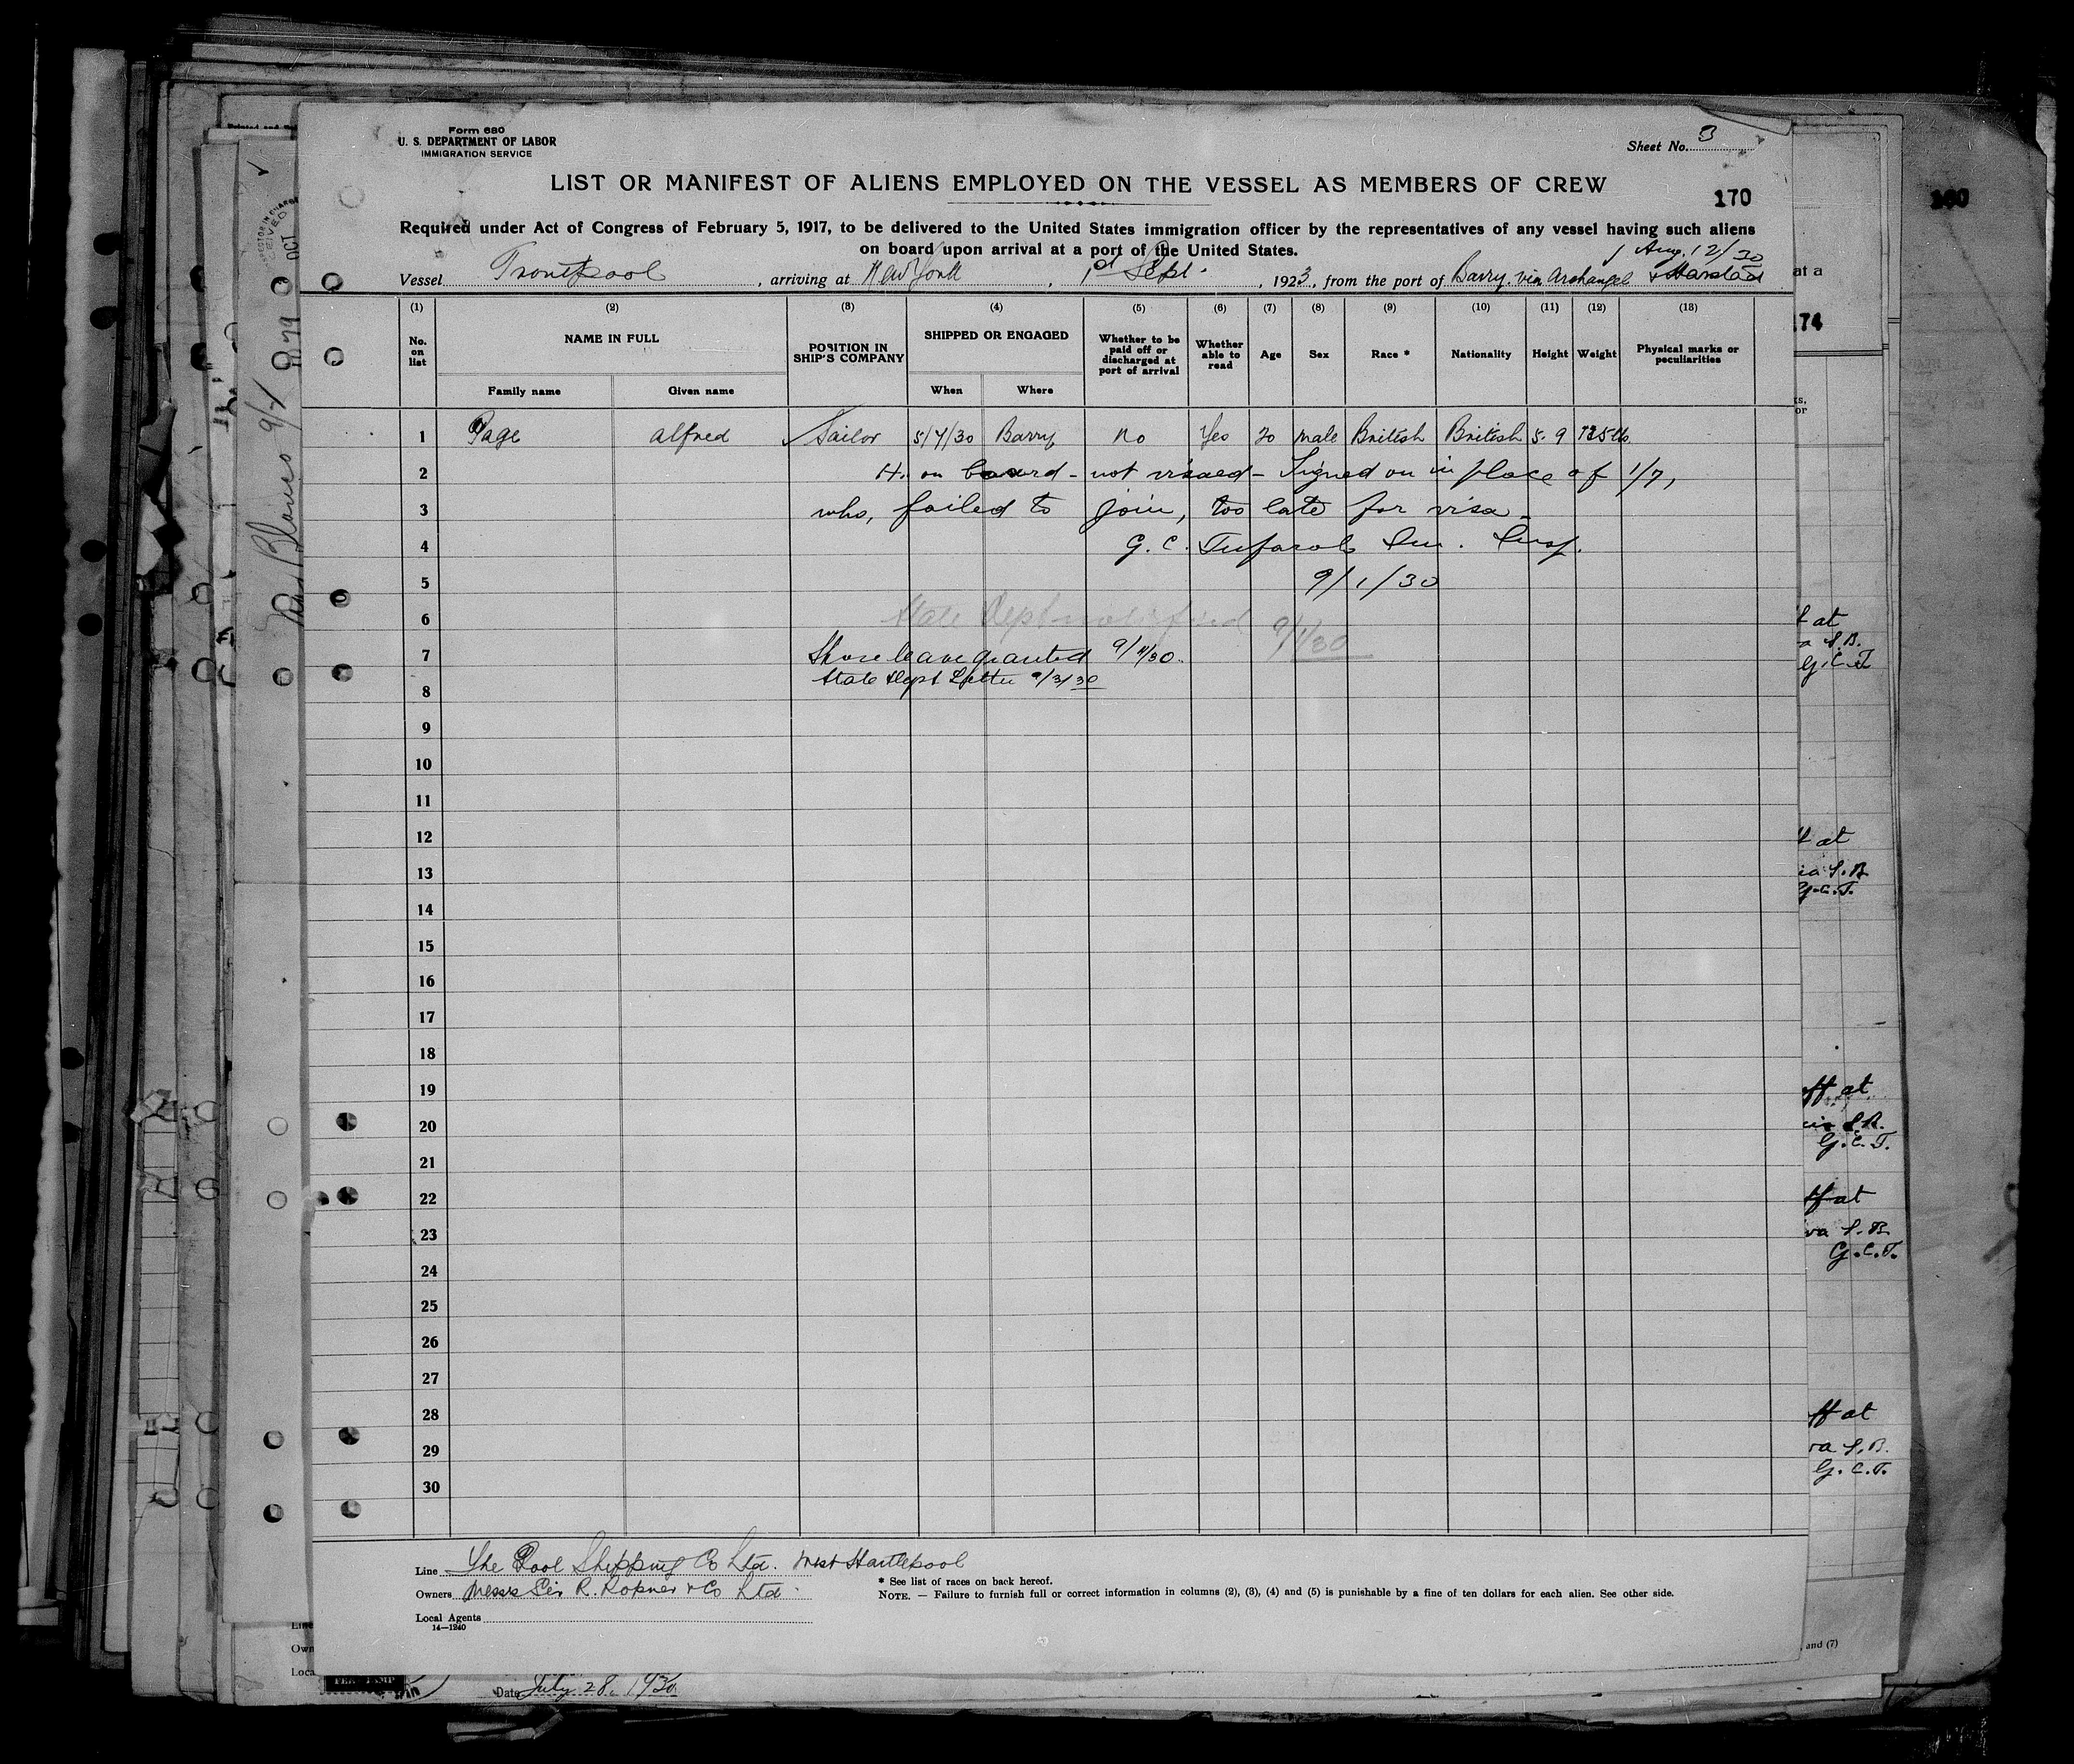 Form 680
U. S. DEPARTMENT OF LABOR
IMMIGRATION SERVICE
Sheet No. 3
LIST OR MANIFEST OF ALIENS EMPLOYED ON THE VESSEL AS MEMBERS OF CREW
170
160
Required under Act of Congress of February 5, 1917, to be delivered to the United States immigration officer by the representatives of any vessel having such aliens
on board upon arrival at a port of the United States.
Aug. 12/30
Vessel Trontpool, arriving at New York, 1st Sept., 1923, from the port of Barry via Archangel & Harstad
at a
174
(1) (2) (3) (4) (5) (6) (7) (8) (9) (10) (11) (12) (13)
No. on list NAME IN FULL POSITION IN SHIP'S COMPANY SHIPPED OR ENGAGED Whether to be paid off or discharged at port of arrival Whether able to read Age Sex Race * Nationality Height Weight Physical marks or peculiarities
Family name Given name When Where
1 Page Alfred Sailor 5/7/30 Barry No Yes 20 male British British 5.9 125 lbs
2 on board - not visaed - Signed on in place of 1/7,
3 who, failed to join, too late for visa -
4 G. C. Imm. Insp.
5 9/1/30
6 State Dept notified 9/1/30
7 Shore leave granted 9/11/30.
State Dept Letter 9/3/30
8
9
10
11
12
13
14
15
16
17
18
19
20
21
22
23
24
25
26
27
28
29
30
Line The Pool Shipping Co Ltd. West Hartlepool
* See list of races on back hereof.
Owners Messrs Sir R. Ropner & Co Ltd.
NOTE. — Failure to furnish full or correct information in columns (2), (3), (4) and (5) is punishable by a fine of ten dollars for each alien. See other side.
Local Agents
14—1240
and (7)
Date July 28. 1930